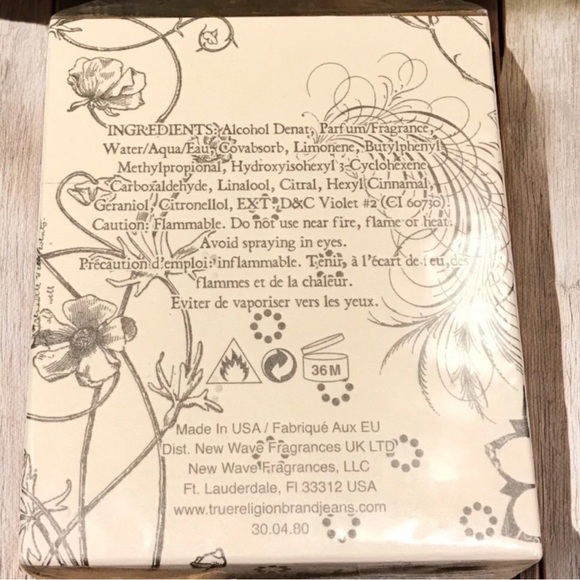 INGREDIENTS: Alcohol Denat, Parfum/Fragrance,
Water/Aqua/Eau, Covabsorb, Limonene, Butylphenyl
Methylpropional, Hydroxyisohexyl 3-Cyclohexene
Carboxaldehyde, Linalool, Citral, Hexyl Cinnamal,
Geraniol, Citronellol, EXT. D&C Violet #2 (CI 60730).
Caution: Flammable. Do not use near fire, flame or heat.
Avoid spraying in eyes.
Précaution d'emploi: inflammable. Tenir, à l'écart de feu, des
flammes et de la chaleur.
Eviter de vaporiser vers les yeux.
36M
Made In USA / Fabriqué Aux EU
Dist. New Wave Fragrances UK LTD
New Wave Fragrances, LLC
Ft. Lauderdale, Fl 33312 USA
www.truereligionbrandjeans.com
30.04.80